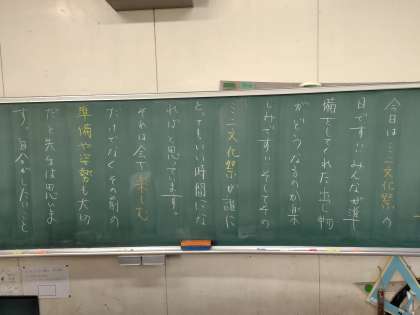 今日はミニ文化祭の
日です!!みんなが準
備をしてくれた出し物
がどうなるのか楽
しみです!!そしてその
ミニ文化祭が誰に
とってもいい時間にな
ればと思っています。
それは全て楽しむ
だけでなくその前の
準備や姿勢も大切
だと先生は思いま
す。自分がしたいこと